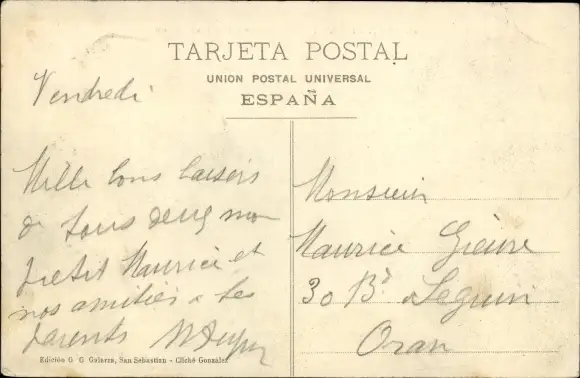 TARJETA POSTAL
UNION POSTAL UNIVERSAL
ESPAÑA
Vendredi
Mille bons baisers
de tous deux mon
petit Maurice et
nos amitiés a tes
parents
Monsieur
Maurice
30 Bd Seguin
Oran
Edición G. G. Galarza, San Sebastian - Cliché González